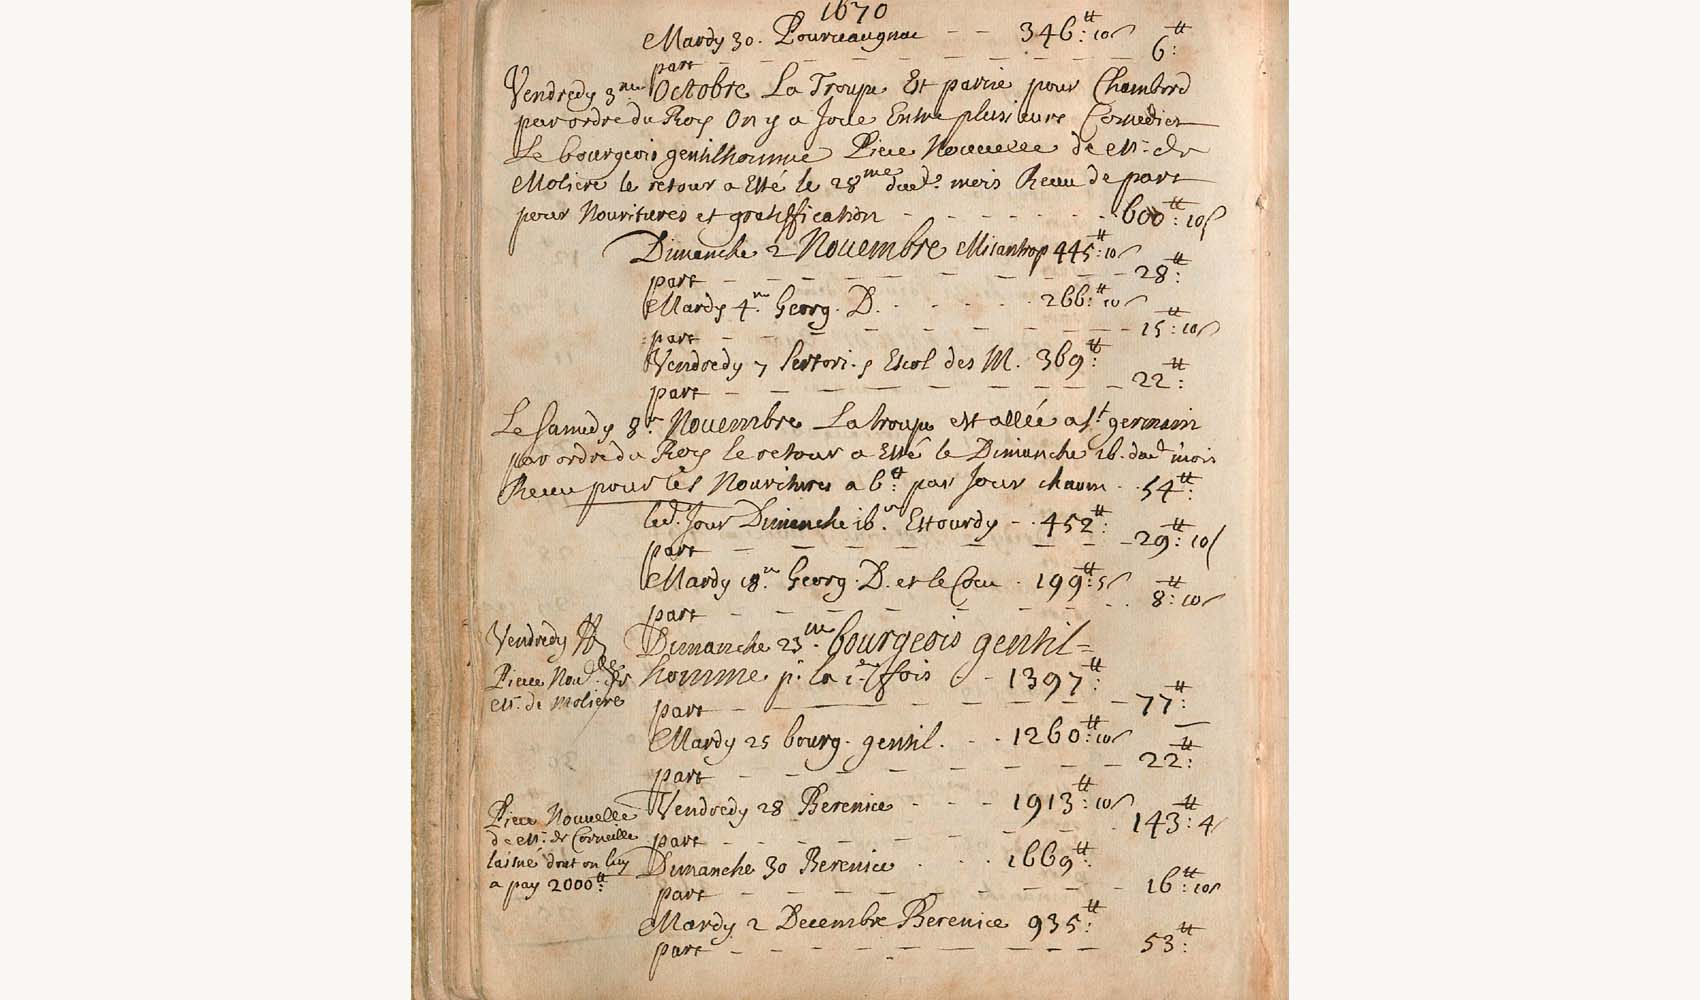 1670
Mardy 30. Pourceaugnac - - 346:tt 10 s
part - - - - - - - - 6:tt
Vendredy 3me Octobre La Troupe Est partie pour Chambord
par ordre du Roy On y a Joüe Entre plusieurs Comedies
Le bourgeois gentilhomme Piece Nouuelle de Mr. de
Moliere le retour a Esté le 28me dud. mois Receu de part
pour Nouritures et gratiffication - - - - - 600:tt 10 s
Dimanche 2 Nouembre Misantrop 445:tt 10 s
part - - - - - - - - 28:tt
Mardy 4me Georg. D. - - - 266:tt 10 s
part - - - - - - - - 15:tt 10 s
Vendredy 7 Sertori. Escol des M. 369:tt
part - - - - - - - - 22:tt
Le Samedy 8e Nouembre La troupe est allée a St germain
par ordre du Roy le retour a Esté le Dimanche 16. dud mois
Receu pour les Nouritures a 6:tt par Jour chacun . . 54:tt
led. Jour Dimanche 16e Estourdy - . 452:tt
part - - - - - - - - 29:tt 10 s
Mardy 18e Georg. D. et le Cocu . 199:tt 5 s
part - - - - - - - - 8:tt 10 s
Vendredy
Dimanche 23me bourgeois gentil=
Piece Nou. de
homme p. la 1ere fois - 1397:tt
Mr. de Moliere
part - - - - - - - - 77:tt
Mardy 25 bourg. gentil. - . . 1260:tt 10 s
part - - - - - - - - 22:tt
Vendredy 28 Berenice - - - 1913:tt 10 s
Piece Nouuelle
de Mr. de Corneille
laisné dont on luy
a pay 2000:tt
part - - - - - - - - 143:tt 4 s
Dimanche 30 Berenice . . . 1669:tt
part - - - - - - - - 16:tt 10 s
Mardy 2 Decembre Berenice 935:tt
part - - - - - - - - 53:tt